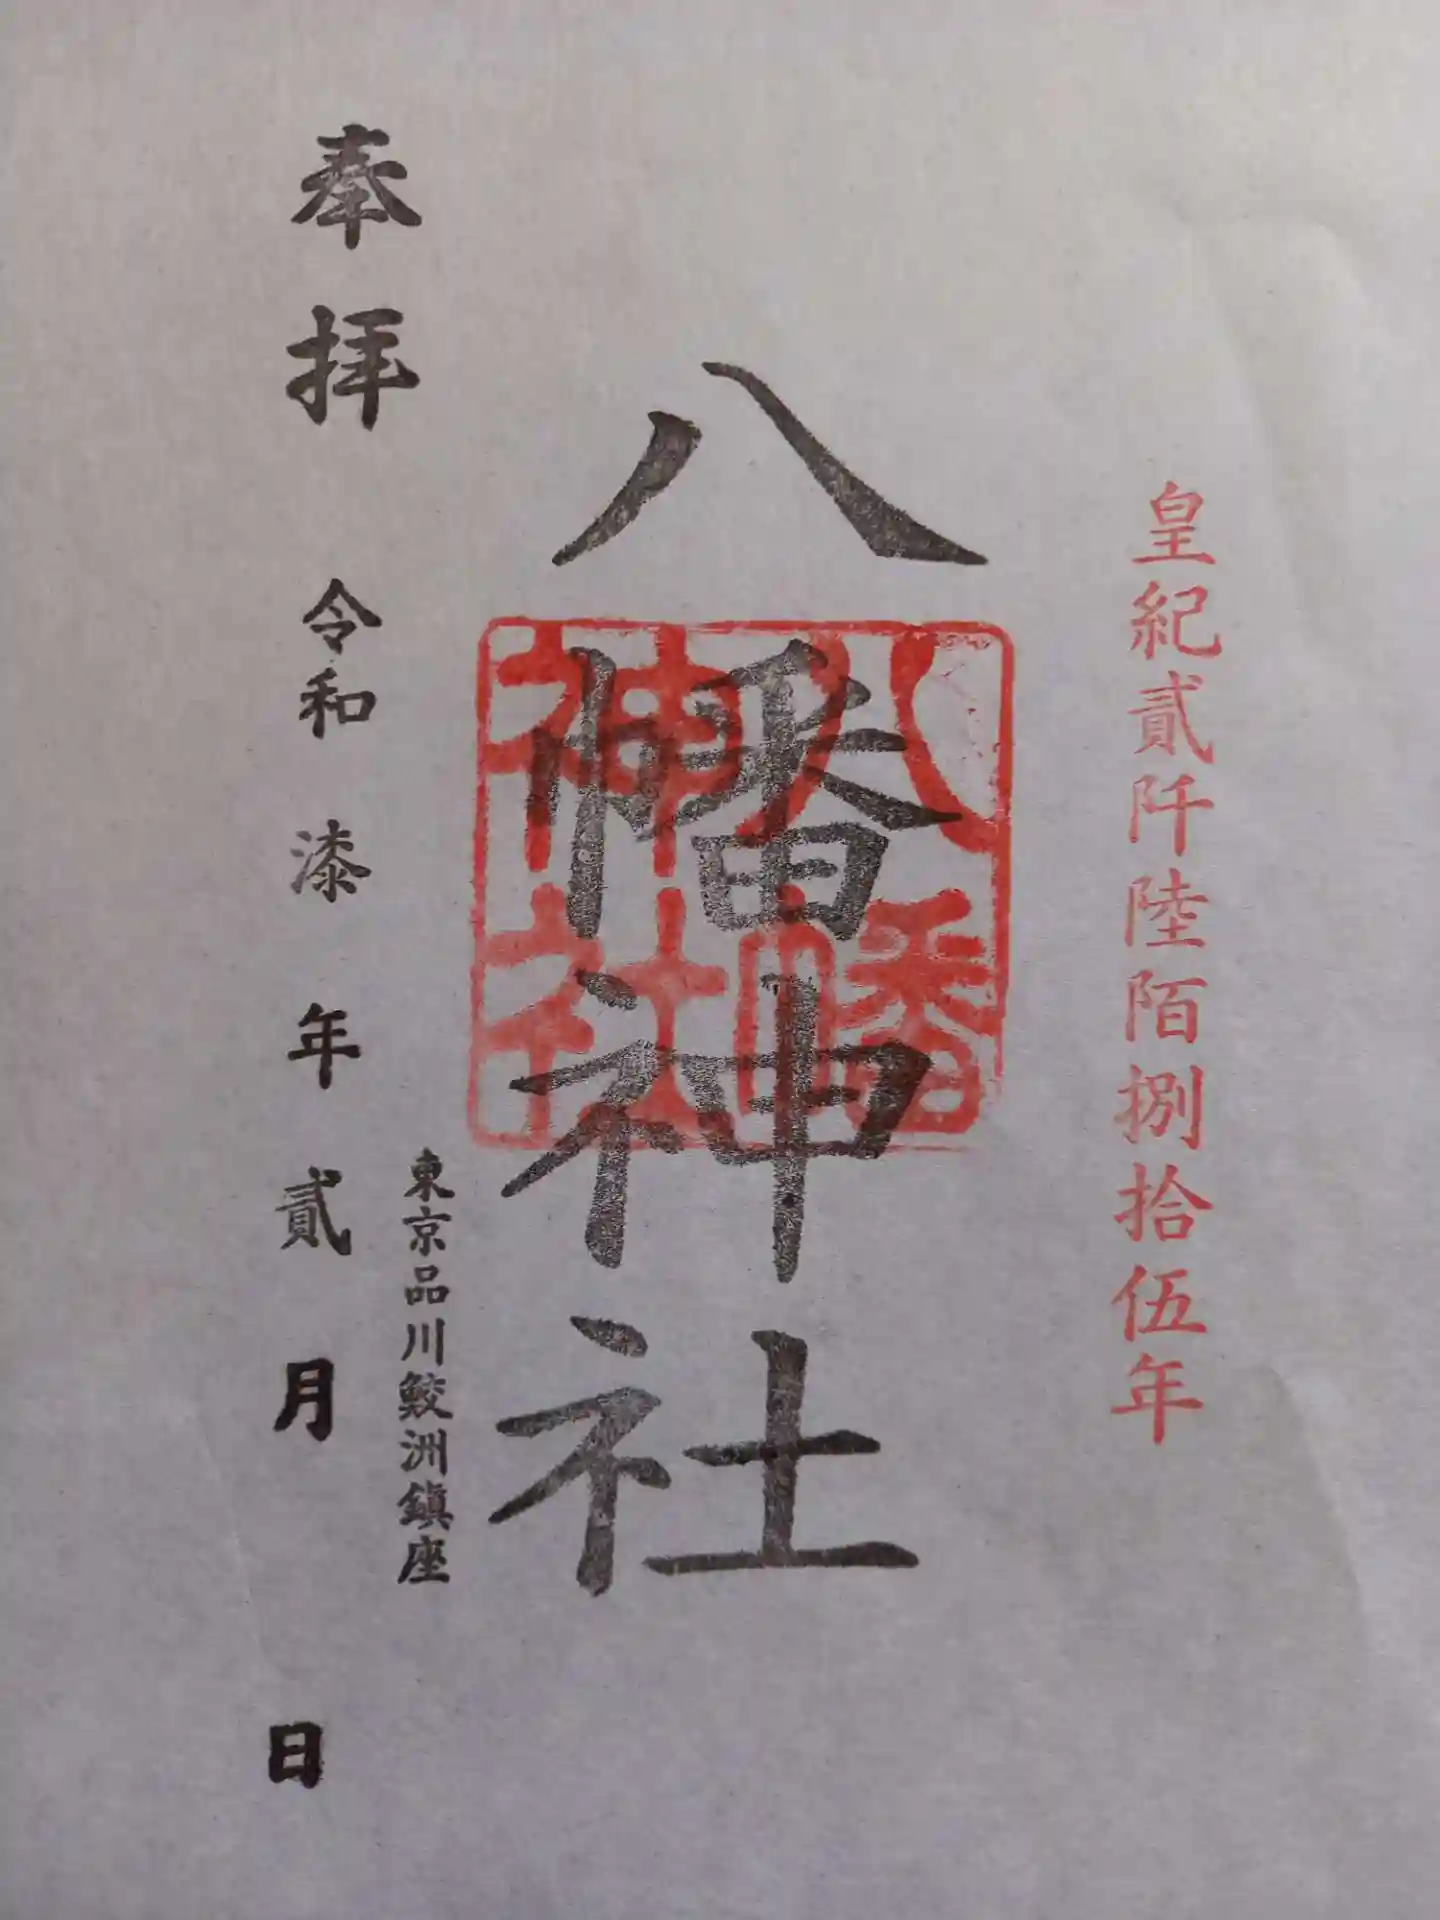 皇紀貳阡陸陌捌拾伍年
八幡神社
八幡
神社
東京品川鮫洲鎮座
奉拝
令和漆年貳月日